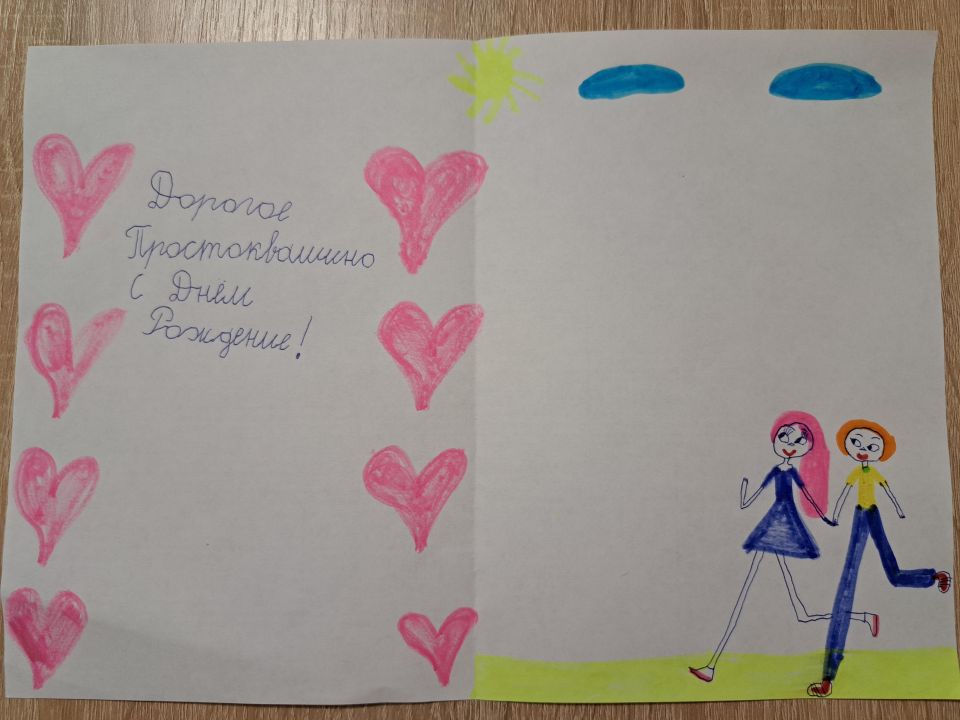 Дорогое
Простоквашино
С Днём
Рождение!